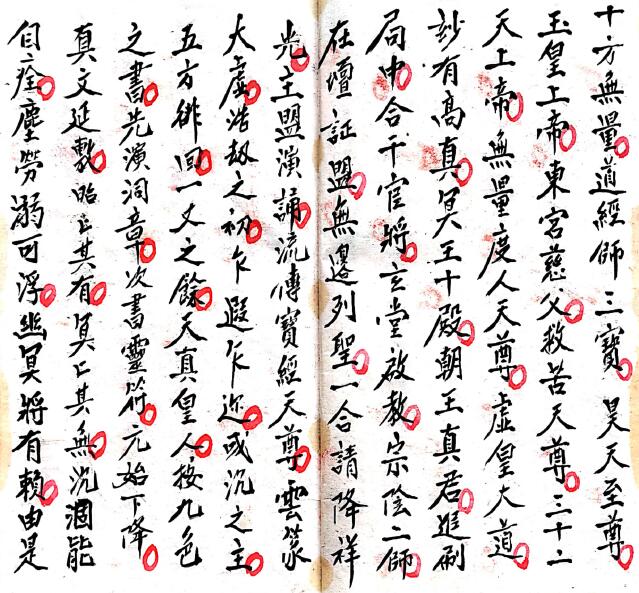 十方無量道經師三寶昊天至尊
玉皇上帝東宮慈父救苦天尊三十二
天上帝無量度人天尊虛皇大道
妙有高真冥王十殿朝王真君進刷
局中合干官將玄堂啟教宗陰二師
在壇証盟無邊列聖一合請降祥
光主盟演誦流傳寶經天尊雲篆
大虛浩劫之初乍遐乍迩或沉之主
五方徘回一丈之餘天真皇人按九色
之書先演洞章次書靈符元始下降
真文延敷昭昭其有冥冥其無沉涸能
自痊塵勞溺可浮幽冥將有賴由是